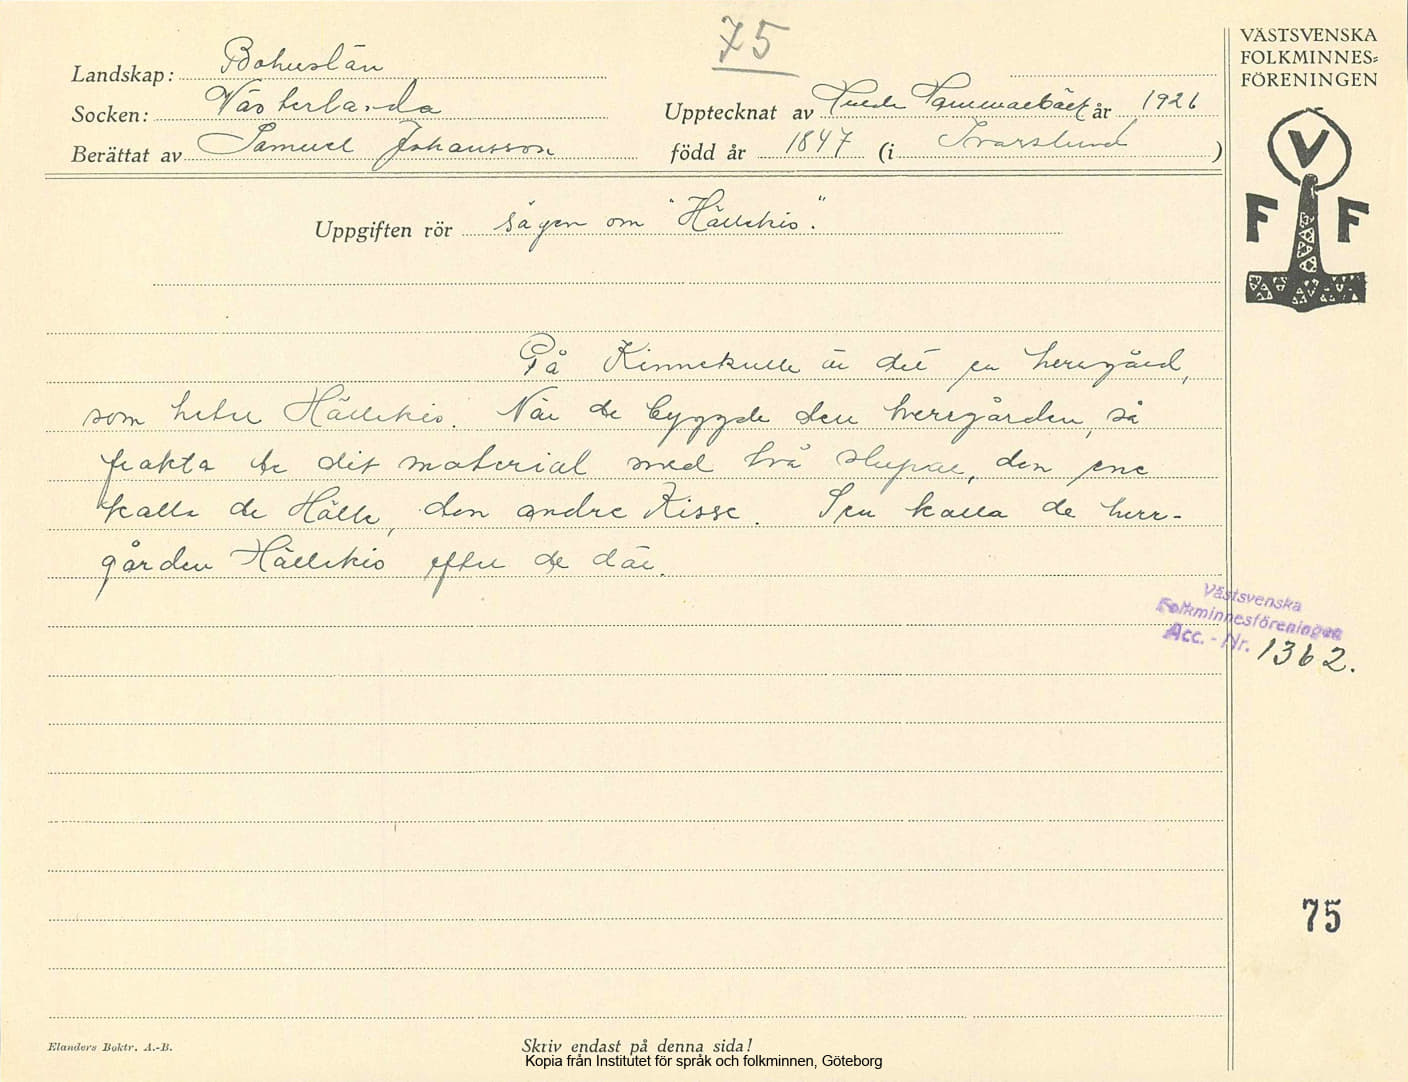 75
VÄSTSVENSKA
FOLKMINNES-
FÖRENINGEN
Landskap: Bohuslän
Socken: Västerlanda
Upptecknat av Hammarbäck år 1926
Berättat av Samuel Johansson
född år 1847 (i Ivarslund)
V
F F
Uppgiften rör sägen om "Hällekis".
På Kinnekulle är det en herrgård,
som heter Hällekis. När de byggde den herrgården, så
frakta de dit material med två slupar, den ene
kalla de Hälle, den andre Kisse. Sen kalla de herr-
gården Hällekis efter de där.
Västsvenska
Folkminnesföreningen
Acc. - Nr. 1362.
75
Elanders Boktr. A.-B.
Skriv endast på denna sida!
Kopia från Institutet för språk och folkminnen, Göteborg